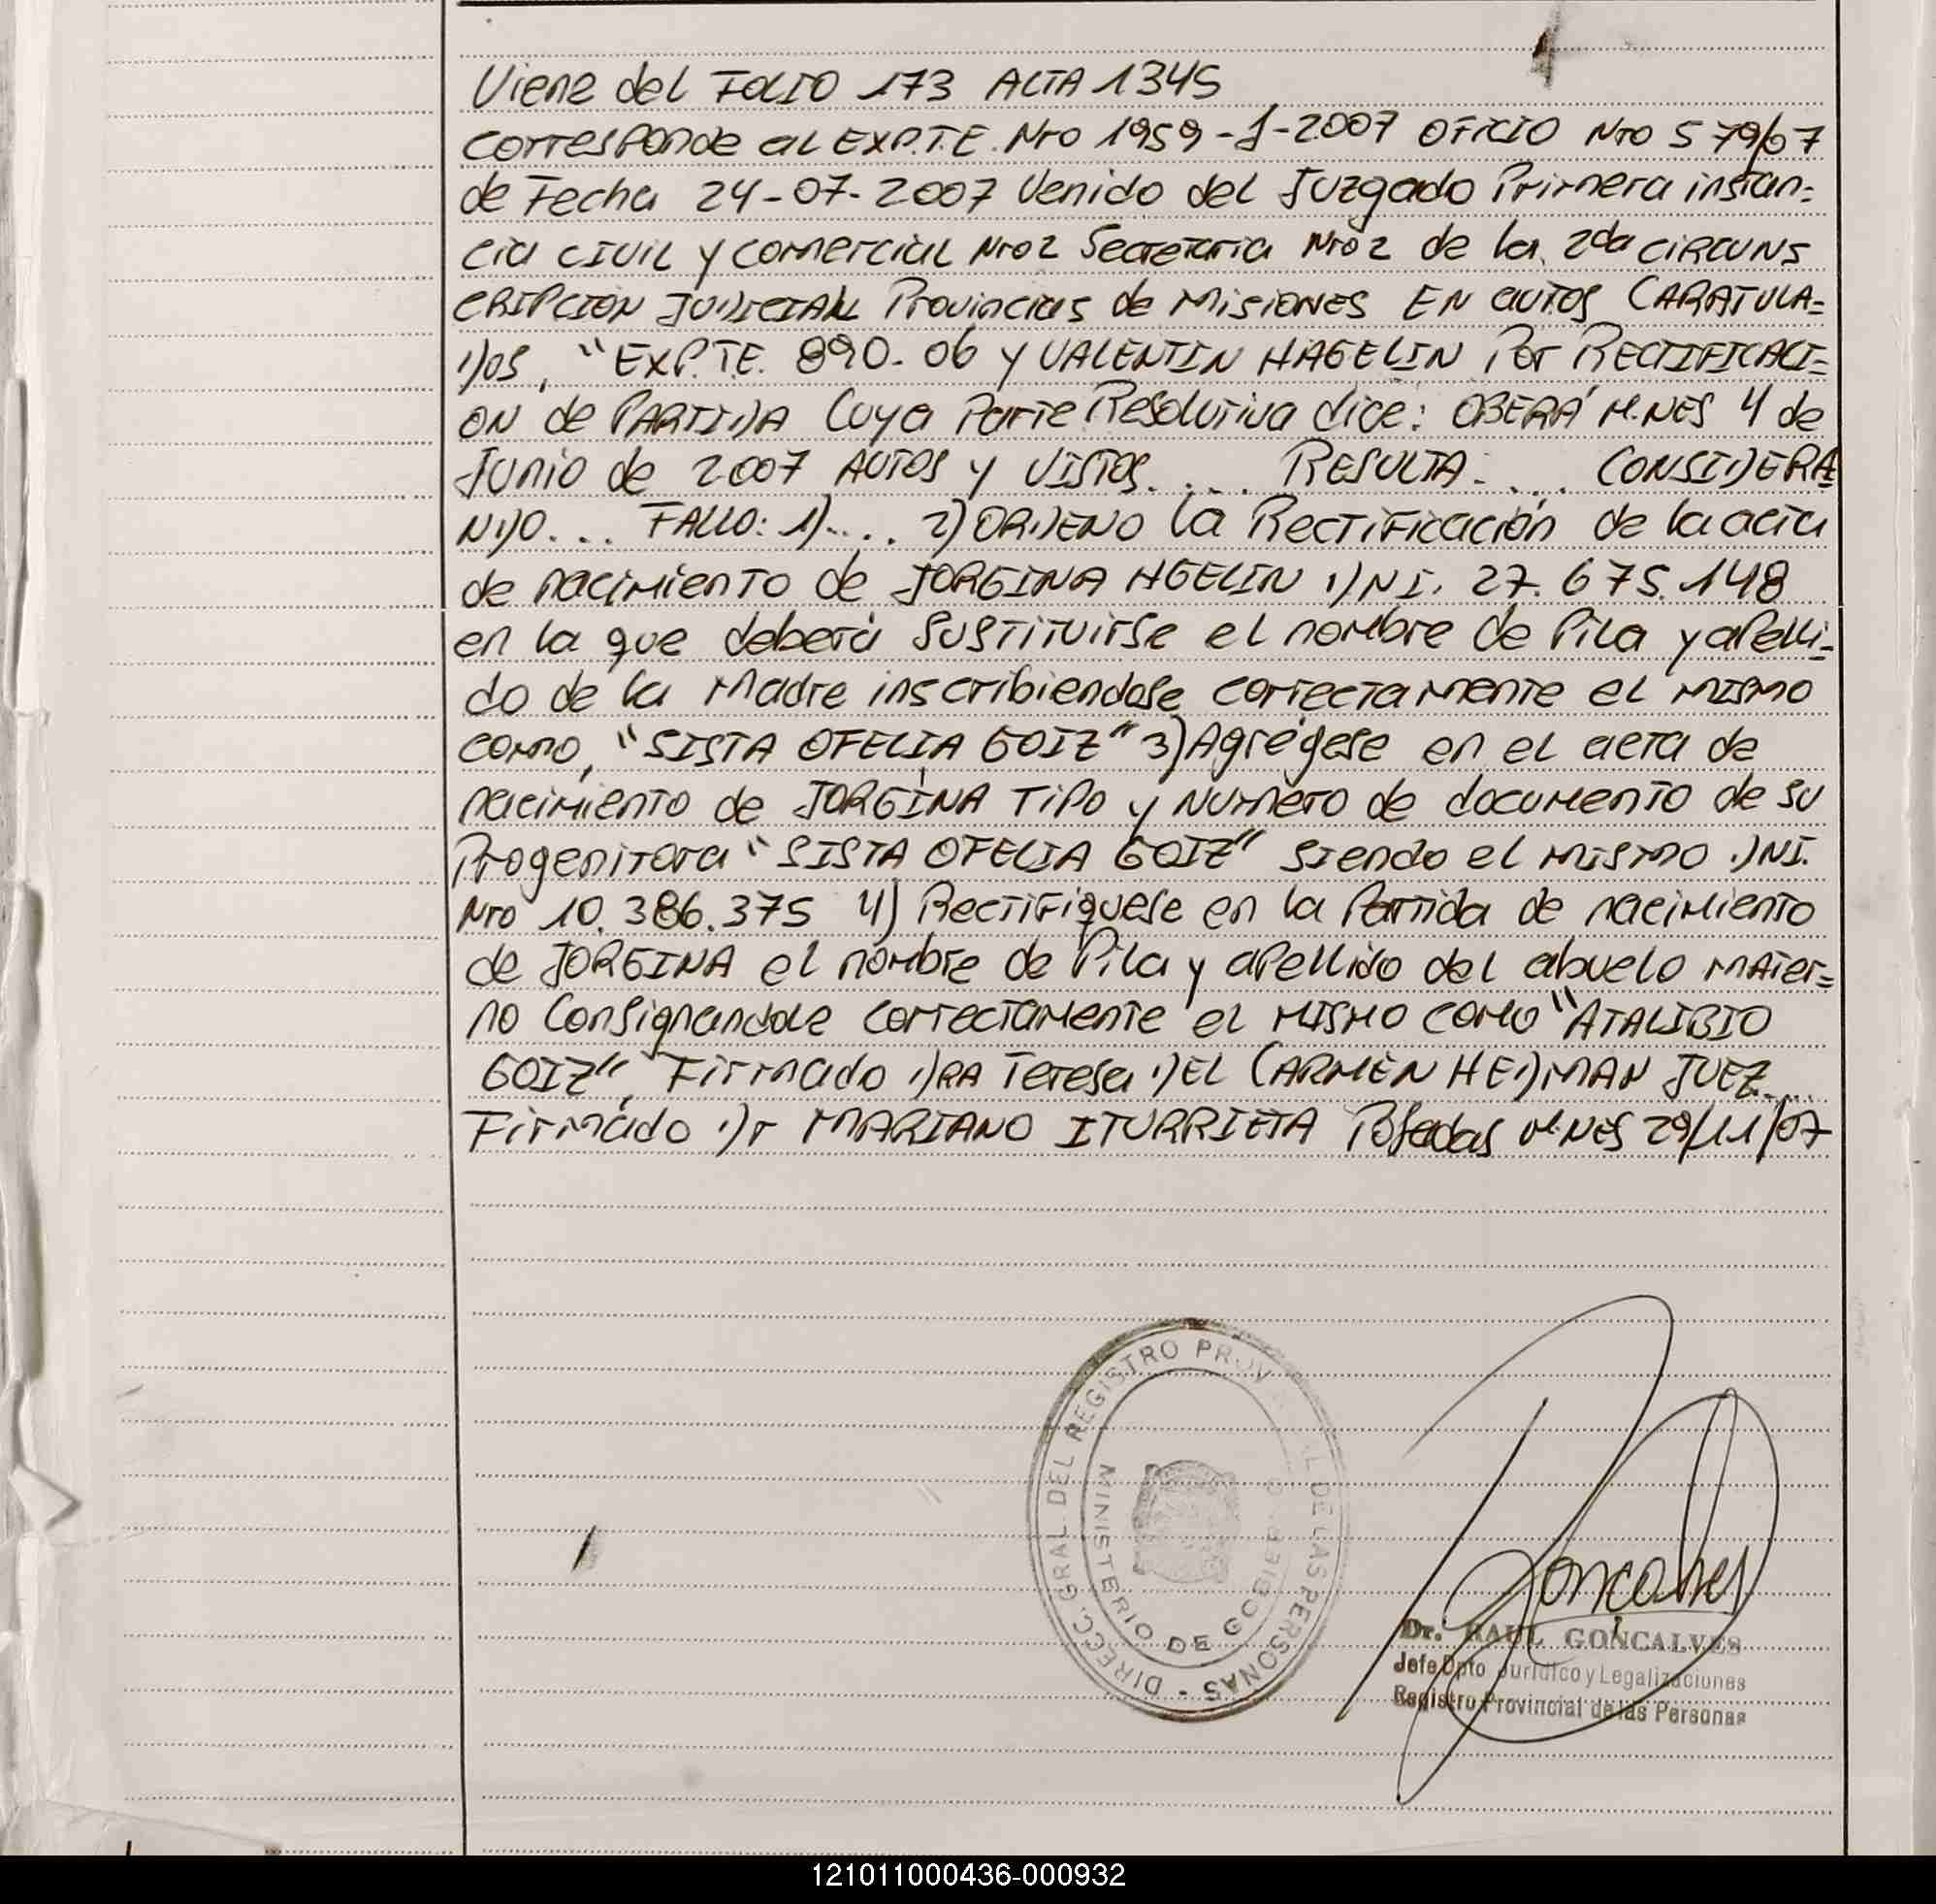 Viene del FOLIO 173 ACTA 1345
corresponde al EXP.T.E. Nro 1959-J-2007 OFICIO Nro 579/07
de Fecha 24-07-2007 Venido del Juzgado Primera instan=
cia CIVIL y comercial Nro 2 Secretaria Nro 2 de la 2da CIRCUNS
CRIPCION JUDICIAL Provincias de MISIONES EN autos CARATULA=
DOS, "EXP.T.E. 890-06 y VALENTIN HAGELIN Por RECTIFICACI=
ON de PARTIDA Cuya Parte Resolutiva dice: OBERÁ M.NES 4 de
Junio de 2007 AUTOS y VISTOS.... RESULTA.... CONSIDERA
NDO... FALLO: 1).... 2) ORDENO la Rectificación de la acta
de nacimiento de JORGINA HGELIN DNI. 27.675.148
en la que deberá sustituirse el nombre de Pila y apelli-
do de la Madre inscribiendose correctamente el mismo
como, "SISTA OFELIA GOIZ" 3) Agrégese en el acta de
nacimiento de JORGINA Tipo y Numero de documento de su
Progenitora "SISTA OFELIA GOIZ" siendo el mismo DNI.
Nro 10.386.375 4) Rectifiquese en la Partida de nacimiento
de JORGINA el nombre de Pila y apellido del abuelo mater=
no Consignandole correctamente el MISMO como "ATALIBIO
GOIZ", Firmado DRA Teresa DEL CARMEN HEDMAN JUEZ....
Firmado Dr MARIANO ITURRIETA Posadas M.NES 29/11/07
DIRECC. GRAL. DEL REGISTRO PROV AL DE LAS PERSONAS -
MINISTERIO DE GOBIERNO
Goncalves
Dr. RAUL GONÇALVES
Jefe Dpto Jurídico y Legalizaciones
Registro Provincial de las Personas
121011000436-000932